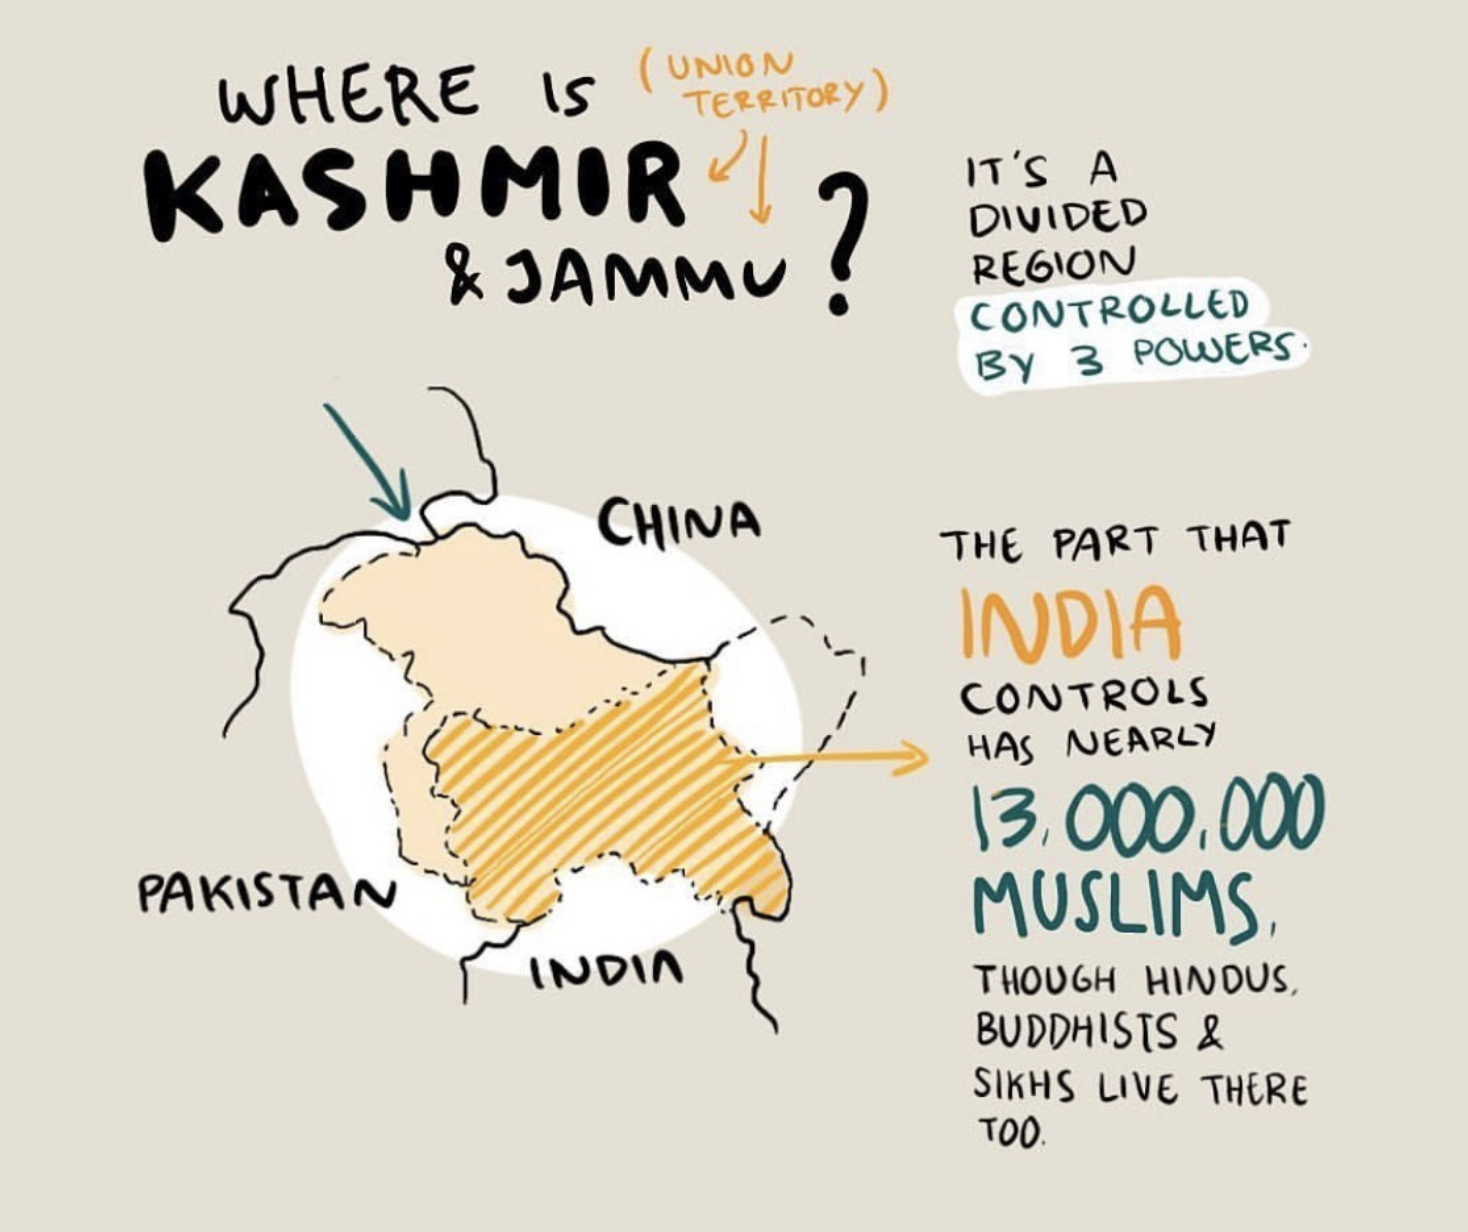 WHERE IS (UNION
TERRITORY)
KASHMIR
& JAMMU ?
IT'S A
DIVIDED
REGION
CONTROLLED
BY 3 POWERS.
CHINA
PAKISTAN
INDIA
THE PART THAT
INDIA
CONTROLS
HAS NEARLY
13,000,000
MUSLIMS,
THOUGH HINDUS,
BUDDHISTS &
SIKHS LIVE THERE
TOO.